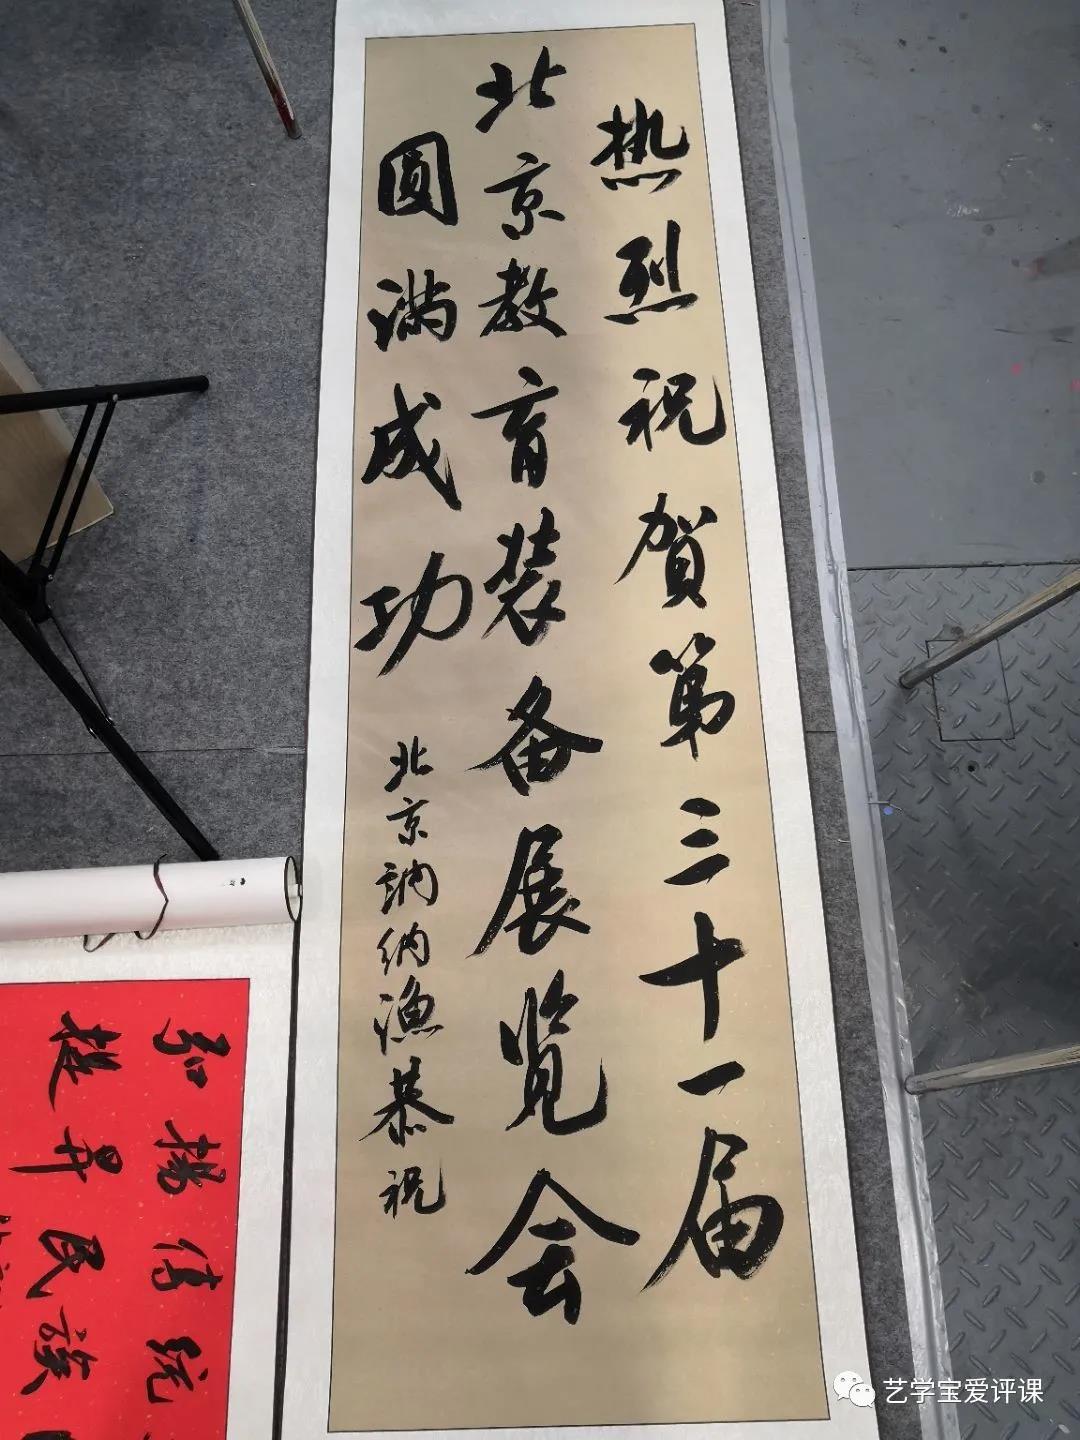 热烈祝贺第三十一届
北京教育装备展览会
圆满成功
北京讷纳渔恭祝
弘扬传统
提升民族
艺学宝爱评课